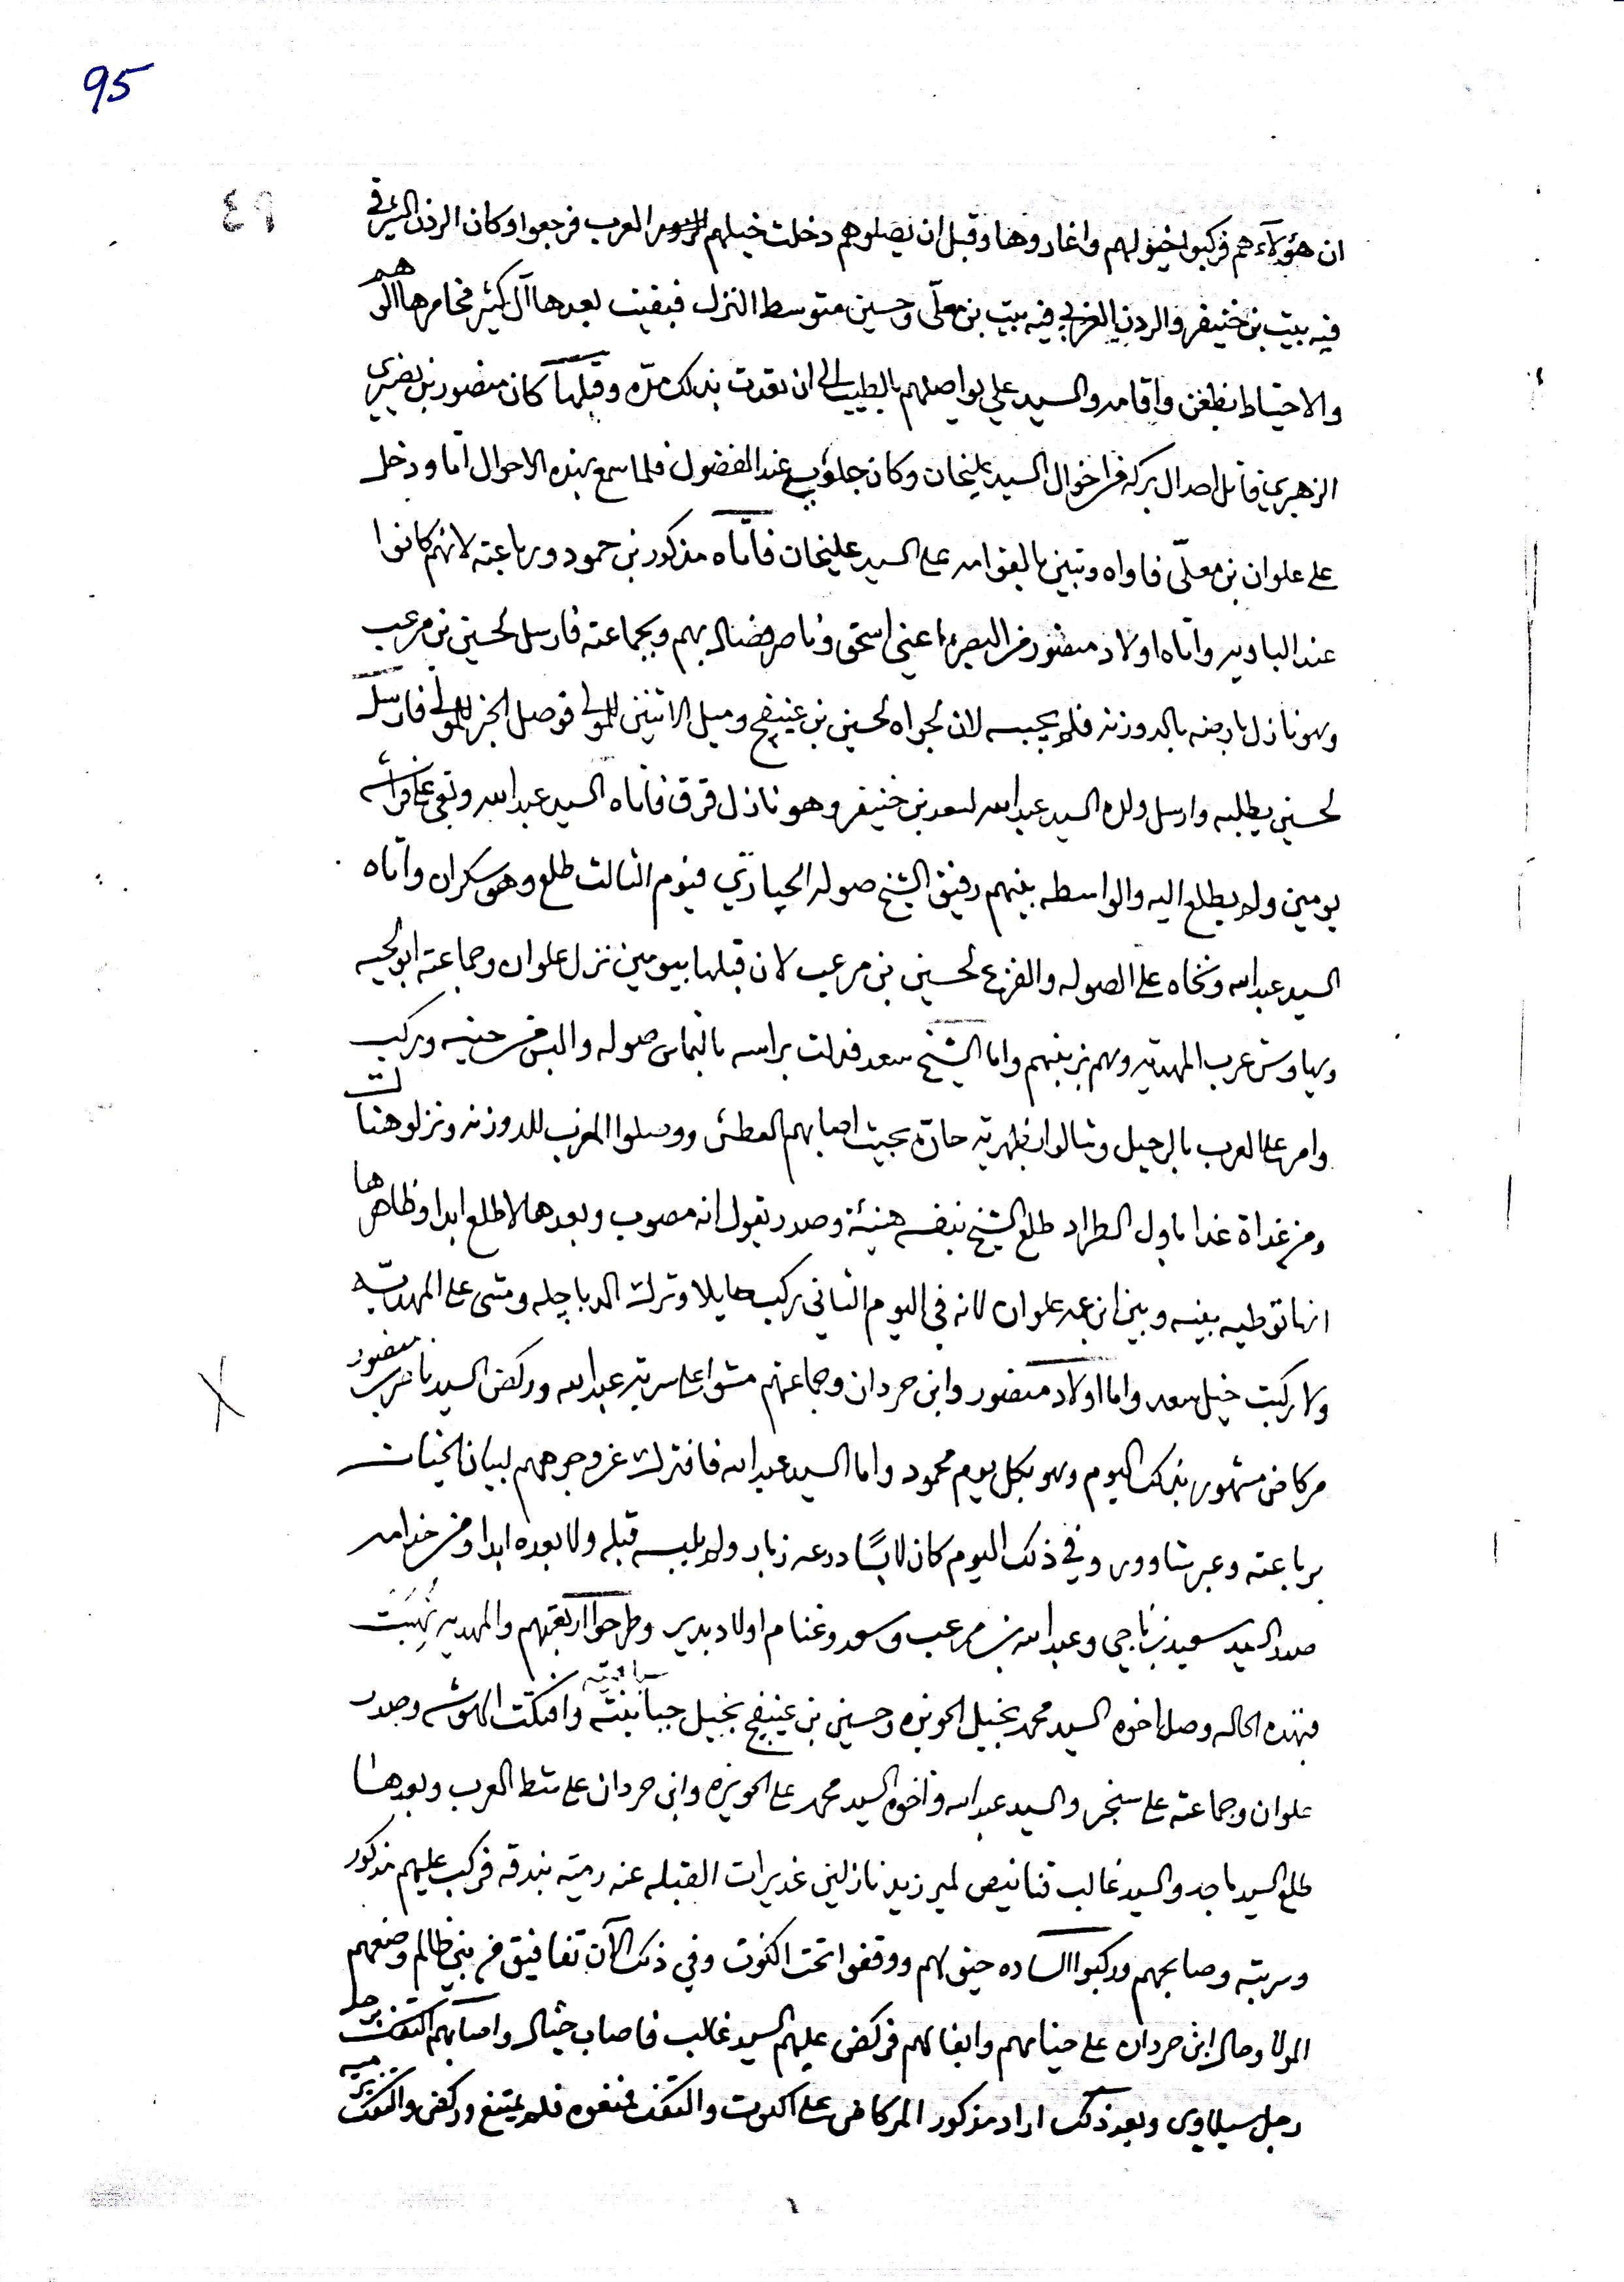 95
٤٩
ان هؤلاء هم فركبوا خيولهم واغاروها وقبل ان يصلوهم دخلت خيلهم العرب فرجعوا وكان الردن الشرقي
فيه بيت بن خنيفر والردن الغربي فيه بيت بن معلّى وحسين متوسط النزل فبقيت بعدها آل كثير مخامرها الوهم
والاحتياط بظعن واقامه والسيد علي يواصلهم بالطيب الى ان تعدت بذلك مدّه وقبلها كان منصور بن نصيري
الزهيري قاتل احد ال بركه من اخوال السيد عليخان وكان جلوي عند الفضول فلما سمع بهذه الاحوال اتا ودخل
على علوان بن معلّى فاواه وتبين بالقوامه على السيد عليخان فاتاه مذكور بن حمود ورباعته لانهم كانوا
عند الباويه واتاه اولاد منصور من البصره اعني اسحق وناصر فضال بهم وبجماعته فارسل لحسين بن مرعب
وهو نازل بارضه بالدوزنه فلم يجيبه لان لجواه لحسين بن غنيفج وميل الاثنين للمولى فوصل الخبر للمولى فارسل
لحسين يطلبه وارسل ولده السيد عبدالله لسعد بن خنيفر وهو نازل قرق فاتاه السيد عبدالله وبقى على فراشه
يومين ولم يطلع اليه والواسطه بينهم رفيق الشيخ صوله الحيادري فيوم الثالث طلع وهو سكران واتاه
السيد عبدالله ونخاه على الصوله والفزع لحسين بن مرعب لان قبلها بيومين نزل علوان وجماعته ابو لحيه
وهاوش عرب المهديه وهم بزبنهم واما الشيخ سعد فدلت براسه بالتماس صوله والبس من حينه وركب
وامر على العرب بالرحيل وشالوا بظهريّه حارّه بحيث اصابهم العطش ووصلوا المغرب للدوزنه ونزلو هناك
ومن غداة غدا باول الطراد طلع الشيخ بنفسه هنيئة وصدر يقول انه مصوب وبعدها لا طلع ابدا وظاهرها
انها توطيه بينه وبين ابن عمه علوان لانه في اليوم الثاني ركب حايلا وترك الدباچله ومشى على المهديه
ولا ركبت خيل سعد واما اولاد منصور وابن حردان وجماعتهم مشوا على سربة عبدالله وركض السيد ناصر بن منصور
مركاض مشهور بذلك اليوم وهو بكل يوم محمود واما السيد عبدالله فافترك عن وجوههم لبيان الخيانات
برباعته وعبر شاوور وفي ذلك اليوم كان لابسًا درعه زباد ولم يلبسه قبله ولا بعده ابدا ومن خدامه
صدد السيد سعيد بن ناجي وعبدالله بن مرعب وسعد وغنام اولاد بدير وطرحوا اربعتهم والمهديه نُهِبَت
فبهذه الحاله وصل اخوه السيد محمد بخيل الحويزه وحسين بن غنيفج بخيل جبانبته وافتكت الهوشه وصدر
علوان وجماعته على سنجر والسيد عبدالله واخوه السيد محمد على الحويزه وابن حردان على شط العرب وبعدها
طلع السيد ماجد والسيد غالب قنانيص لمير زيد نازلين غديرات القبله عنه رمية بندقه فركب عليهم مذكور
وسربته وصابحهم وركبوا الساده خيولهم ووقفوا تحت الكوت وفي ذلك الآن تفافيق من بني ظالم وضعهم
المولا وحال ابن حردان على خيامهم وابغالهم فركض عليهم السيد غالب فاصاب خيال واصابهم التفك برجل
رجل سيلاوى وبعد ذلك اراد مذكور المركاض على الكوت والتفك فمنعوه فلم يمتنع وركض والتفك